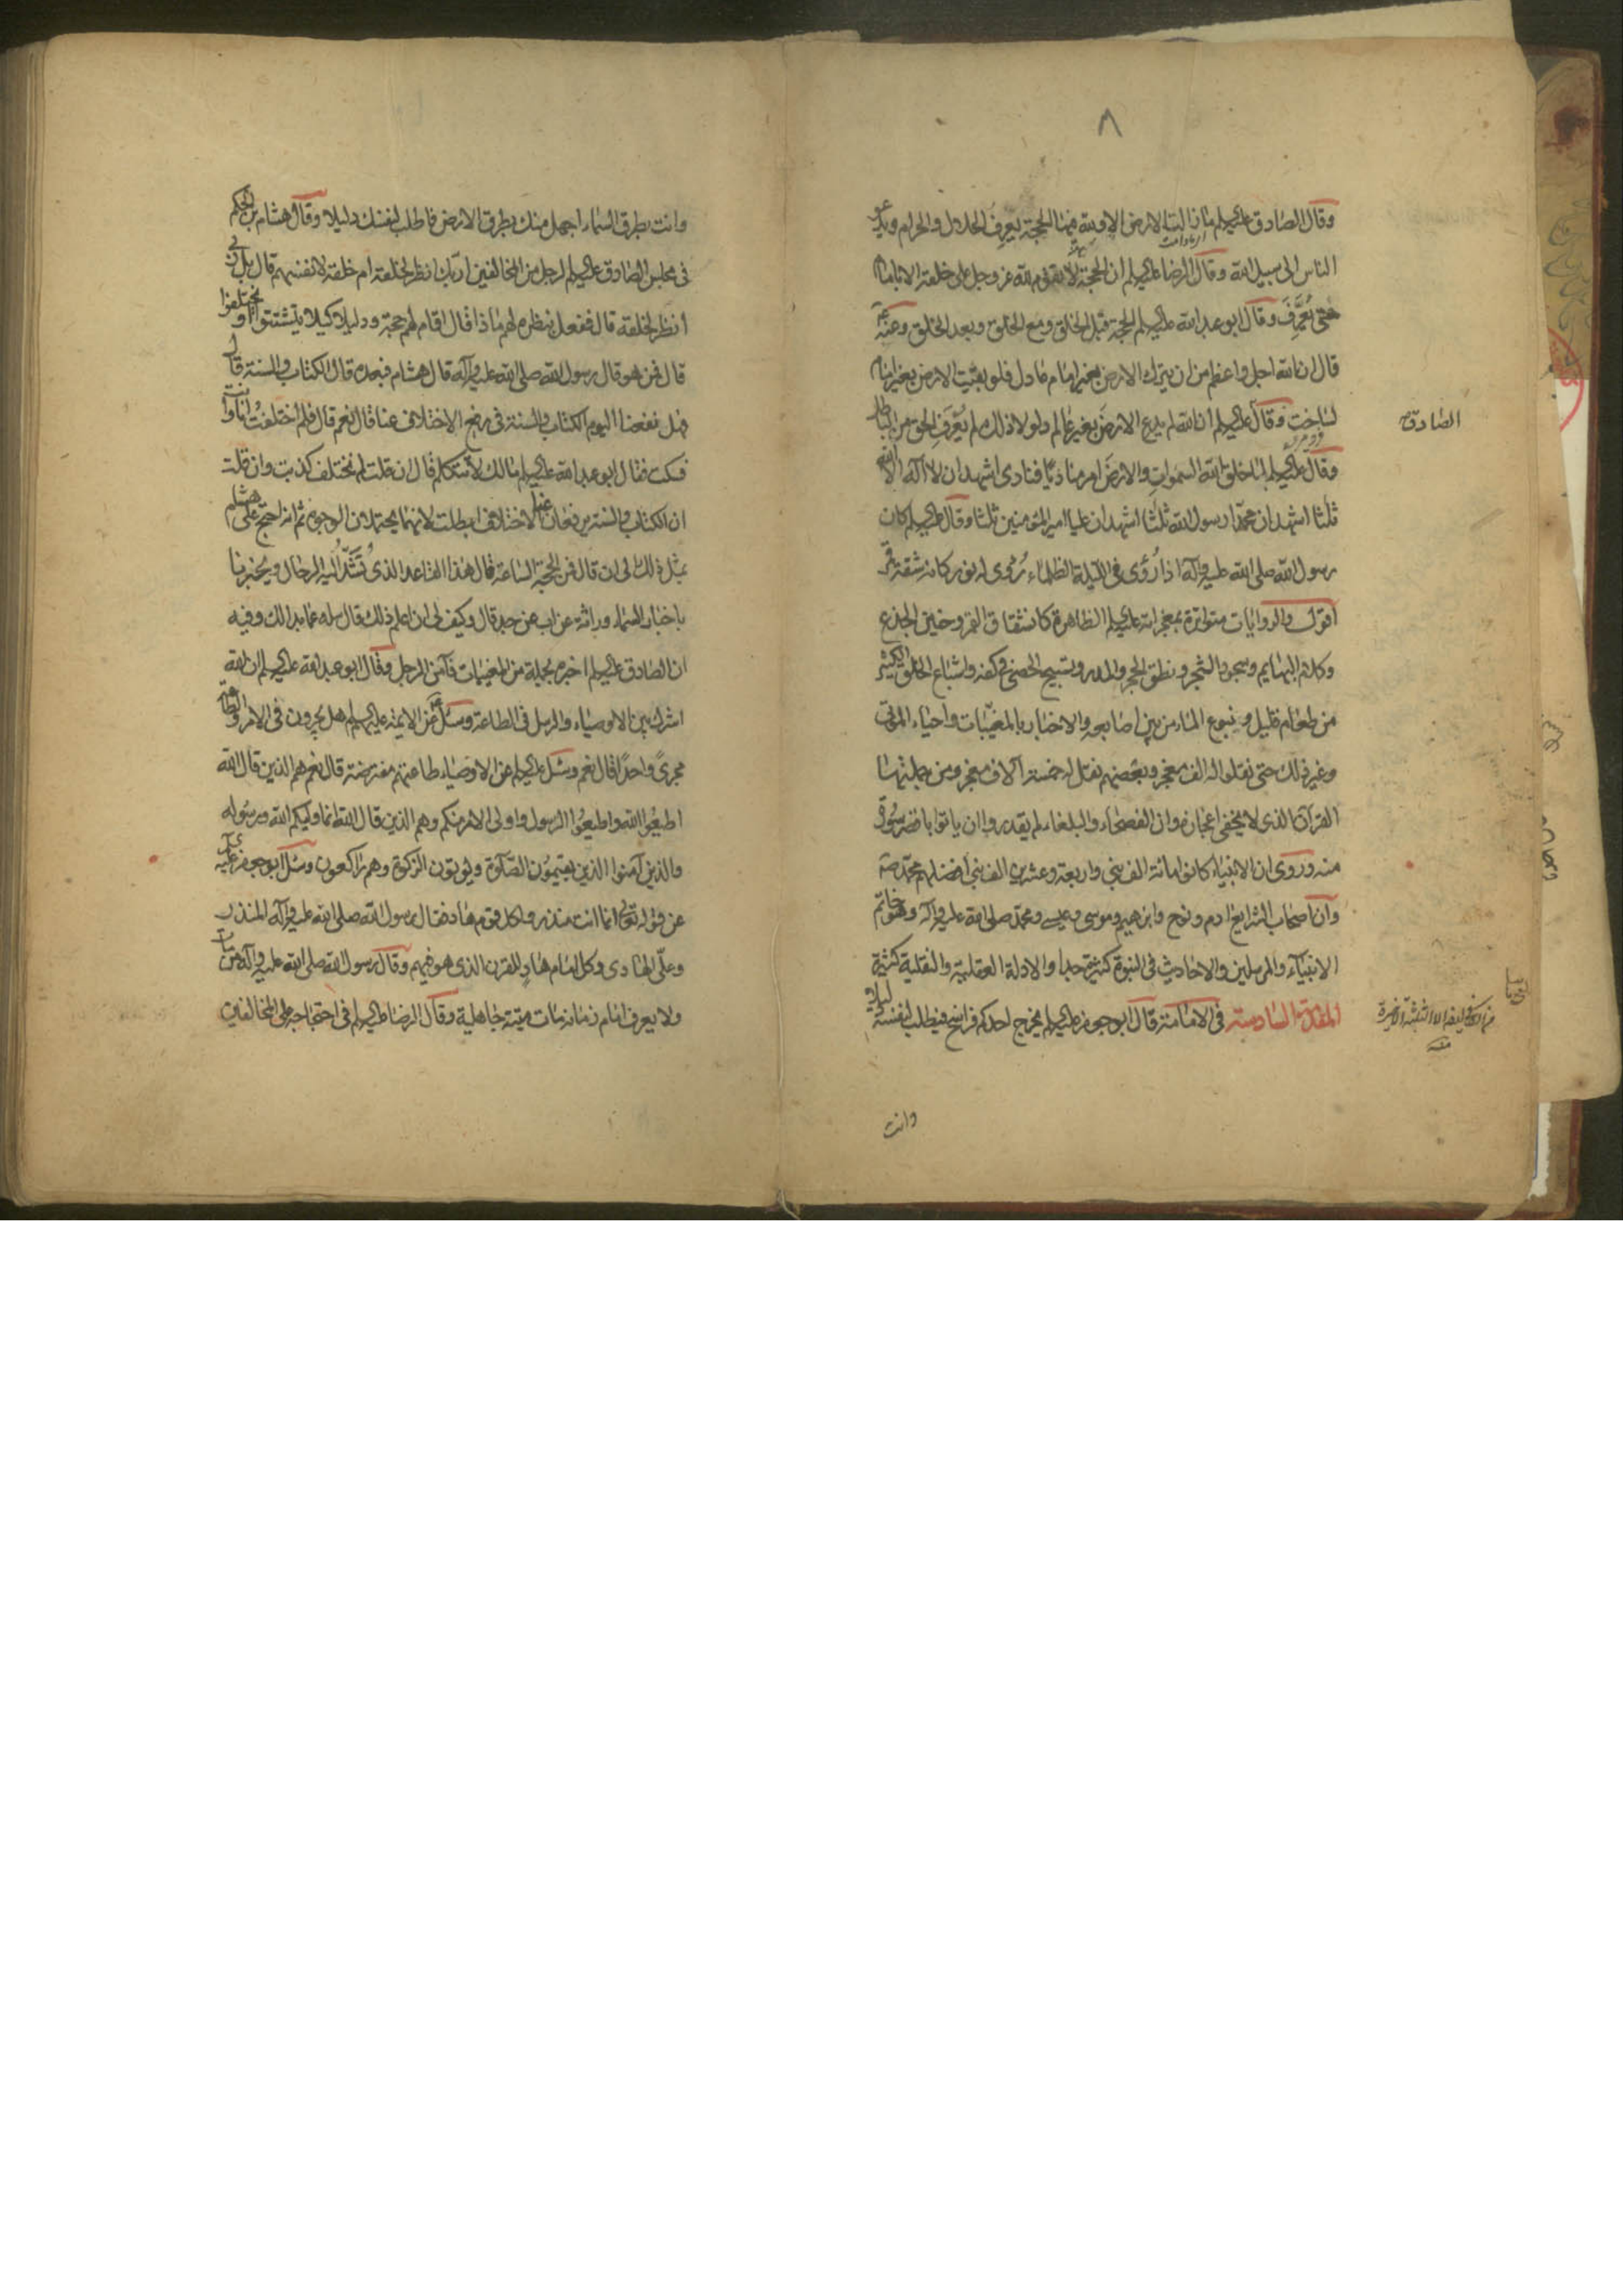 ٨
وقال الصادق عليه السلم ما زالت الارض الا وفيها الحجة يعرف الحلال والحرام ويدعو
الناس الى سبيل الله وقال الرضا عليه السلم ان الحجة لا تقوم لله عز وجل على خلقه الا بامام
حتى يُعرَّف وقال ابو عبد الله عليه السلم الحجة قبل الخلق ومع الخلق وبعد الخلق وعنه
قال ان الله اجل واعظم من ان يترك الارض بغير امام عادل فلو بقيت الارض بغير امام
لساخت وقال عليه السلم ان الله لم يدع الارض بغير عالم ولولا ذلك لم يُعرَف الحق من الباطل
الصادق
وقال عليه السلم لما خلق الله السموات والارض امر مناديا فنادى اشهد ان لا اله الا الله
ثلثا اشهد ان محمدا رسول الله ثلثا اشهد ان عليا امير المؤمنين ثلثا وقال عليه السلم كان
رسول الله صلى الله عليه وآله اذا رُؤى فى الليلة الظلماء رُؤى له نور كانه شقة قمر
اقول والروايات متواترة بمعجزاته عليه السلم الظاهرة كانشقاق القمر وحنين الجذع
وكلام البهايم وسجود الشجر ونطق الحجر والمدر وتسبيح الحصى فى كفه واشباع الخلق الكثير
من طعام قليل وينبوع الماء من بين اصابعه والاخبار بالمغيّبات واحياء الموتى
وغير ذلك حتى نقلوا له الف معجز وبعضهم نقل له خمسة آلاف معجز ومن جملتها
القرآن الذى لا يخفى اعجازه وان الفصحاء والبلغاء لم يقدروا ان ياتوا باقصر سورة
منه وروى ان الانبياء كانوا مائة الف نبي واربعة وعشرين الف نبي افضلهم محمد ص
وان اصحاب الشرايع ادم ونوح وابرهيم وموسى وعيسى ومحمد صلى الله عليه وآله وهو خاتم
الانبياء والمرسلين والاحاديث فى النبوة كثيرة جدا والادلة العقلية والنقلية كثيرة
المقدمة السادسة فى الامامة قال ابو جعفر عليه السلم يخرج احدكم فراسخ فيطلب لنفسه دليلا
وانت
وانت بطرق السماء اجهل منك بطرق الارض فاطلب لنفسك دليلا وقال هشام بن الحكم
فى مجلس الصادق عليه السلم لرجل من المخالفين اربك انظر لخلقه ام خلقه لانفسهم قال بل ربى
انظر لخلقه قال ففعل بنظره لهم ماذا قال اقام لهم حجة ودليلا كيلا يتشتتوا او يختلفوا
قال فمن هو قال رسول الله صلى الله عليه وآله قال هشام فبعده قال الكتاب والسنة قال
فهل نفعنا اليوم الكتاب والسنة فى رفع الاختلاف عنا قال نعم قال فلم اختلفتُ انا وانت
فسكت فقال ابو عبد الله عليه السلم مالك لا تتكلم قال ان قلت لم نختلف كذبت وان قلت
ان الكتاب والسنة يرفعان عنا الاختلاف ابطلت لانهما يحتملان الوجوه ثم انه احتج على هشام
بمثل ذلك الى ان قال فمن الحجة الساعة قال هذا القاعد الذى تُشَدُّ اليه الرحال ويُخبرنا
باخبار السماء وراثة عن اب عن جد قال وكيف لى ان اعلم ذلك قال سله عما بدا لك وفيه
ان الصادق عليه السلم اخبره بجملة من المغيبات فآمن الرجل وقال ابو عبد الله عليه السلم ان الله
اشرك بين الاوصياء والرسل فى الطاعة وسئل عن الايمة عليهم السلم هل يجرون فى الامر والطاعة
مجرىً واحدًا قال نعم وسئل عليه السلم عن الاوصياء طاعتهم مفترضة قال نعم هم الذين قال الله
اطيعوا الله واطيعوا الرسول واولى الامر منكم وهم الذين قال الله انما وليكم الله ورسوله
والذين آمنوا الذين يقيمون الصلوة ويؤتون الزكوة وهم راكعون وسئل ابو جعفر عليه
عن قوله تعالى انما انت منذر ولكل قوم هاد فقال رسول الله صلى الله عليه وآله المنذر
وعلىّ الهادى وكل امام هادٍ للقرن الذى هو فيهم وقال رسول الله صلى الله عليه وآله من مات
ولا يعرف امام زمانه مات ميتة جاهلية وقال الرضا عليه السلم فى احتجاجه على المخالفين